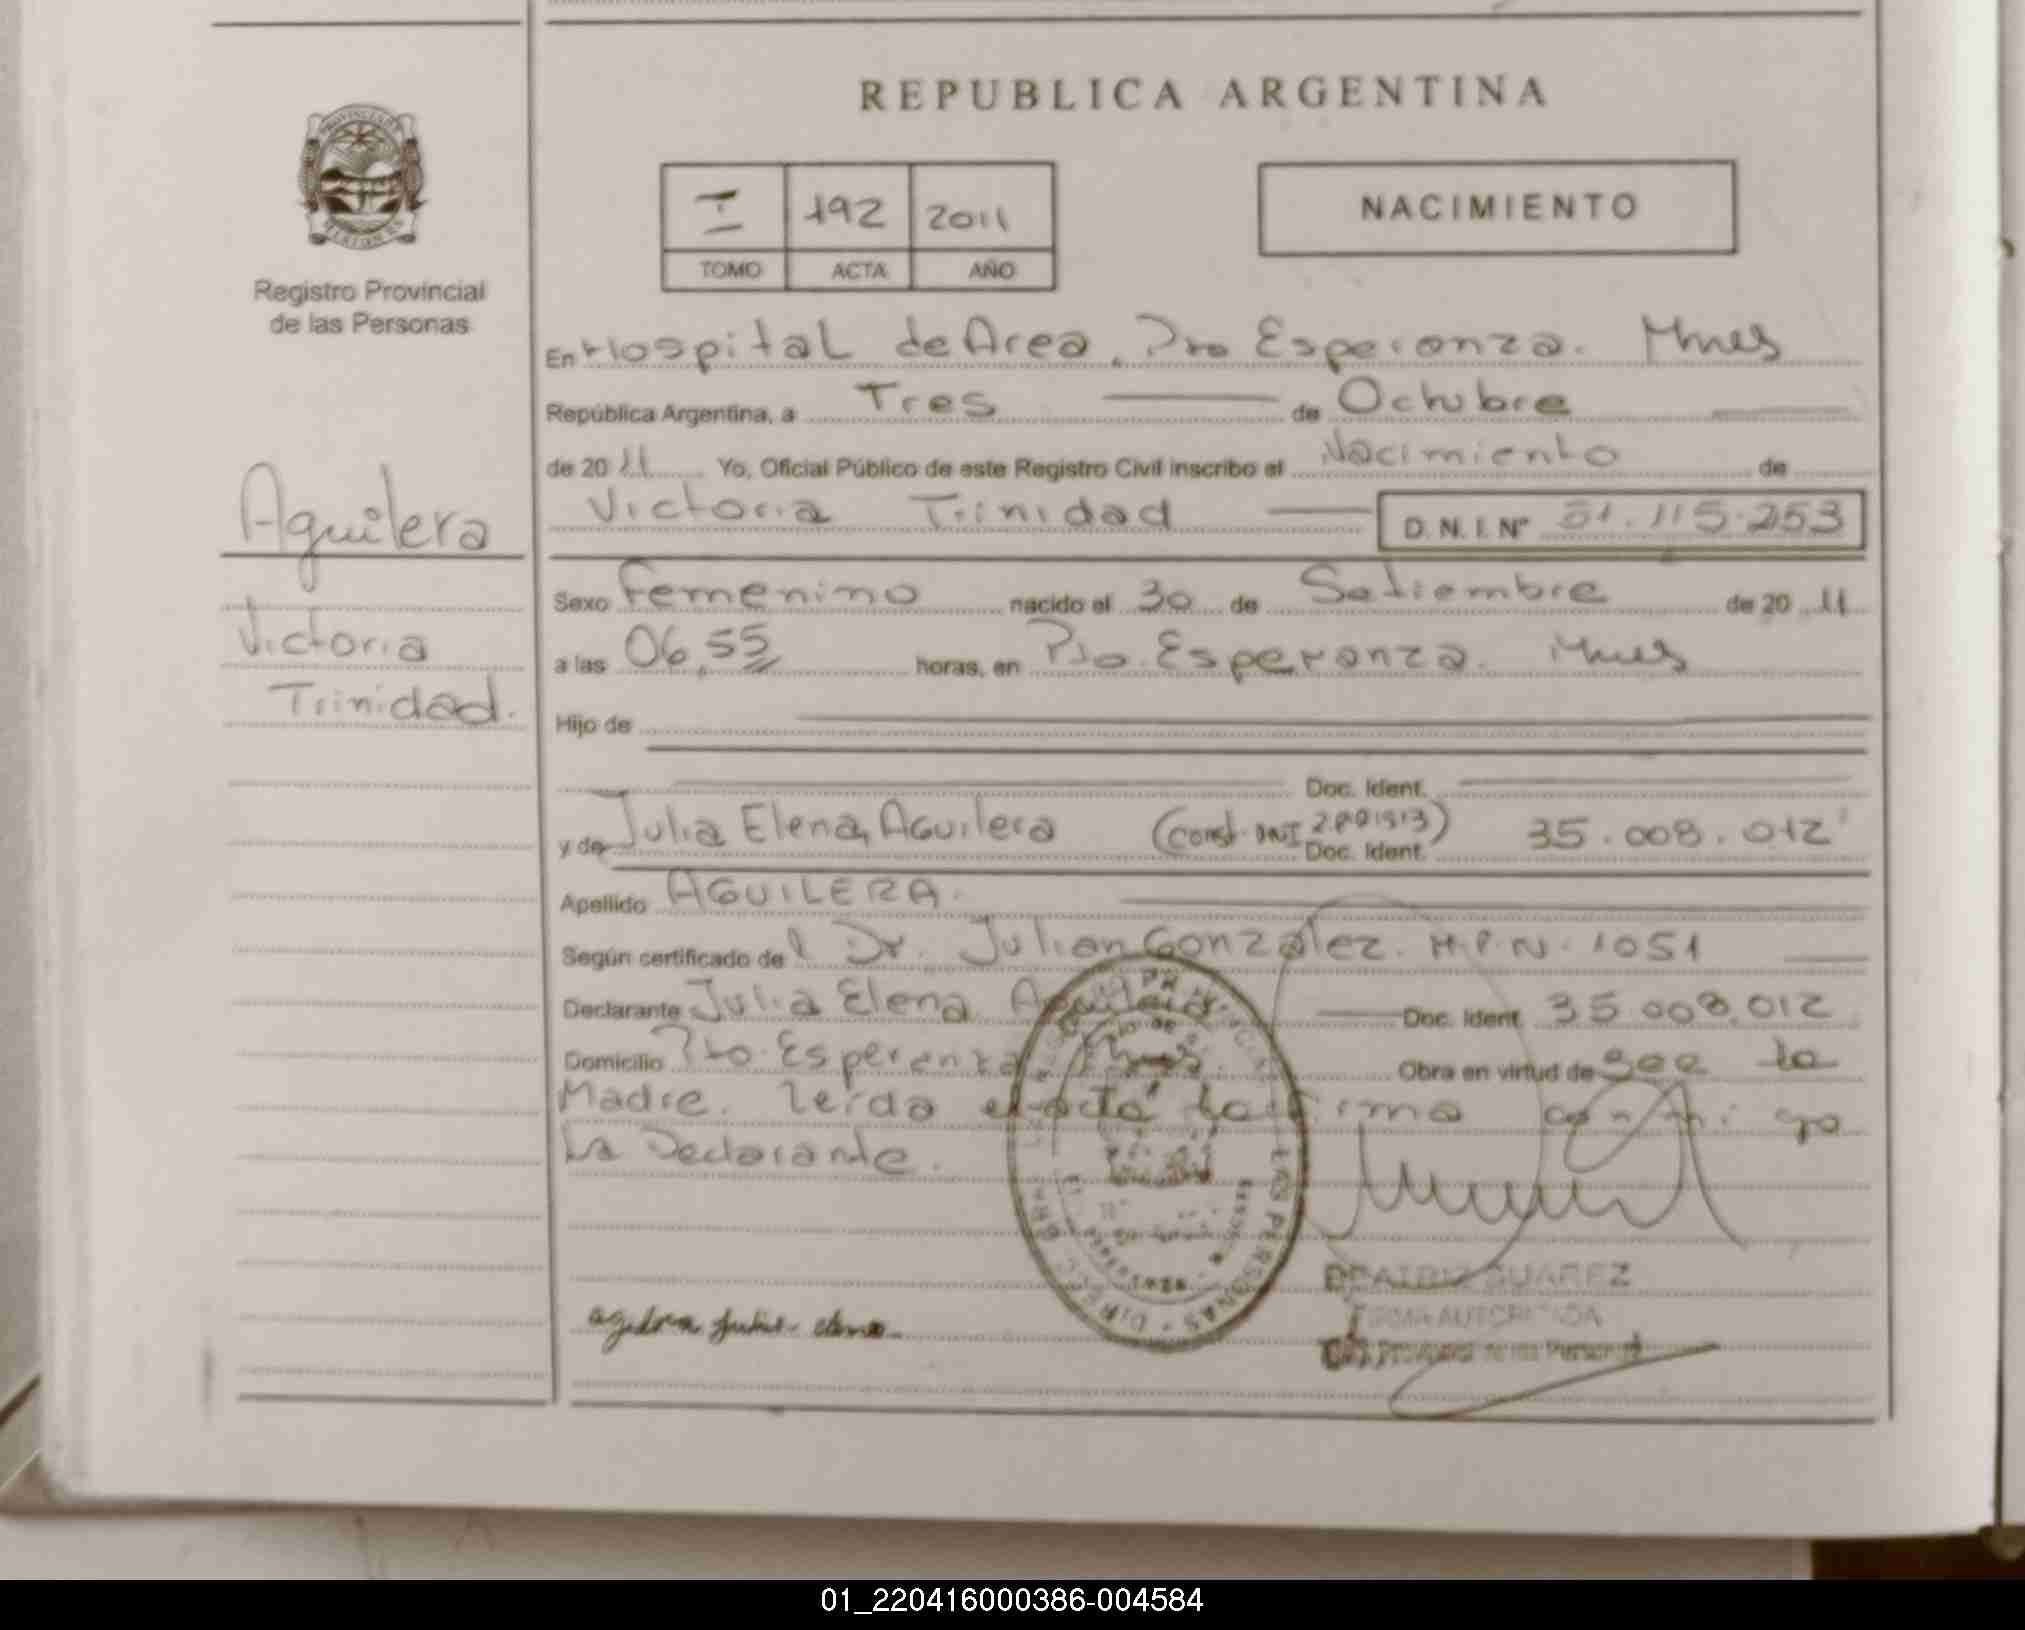 REPUBLICA ARGENTINA
I 192 2011
TOMO ACTA AÑO
NACIMIENTO
Registro Provincial
de las Personas
Aguilera
Victoria
Trinidad.
En Hospital de Area, Pto Esperanza. Mnes
República Argentina, a Tres de Octubre
de 2011 Yo, Oficial Público de este Registro Civil inscribo el Nacimiento de
Victoria Trinidad D.N.I. Nº 51.115.253
Sexo Femenino nacido el 30 de Setiembre de 2011
a las 06,55 horas, en Pto. Esperanza. Mnes
Hijo de
Doc. Ident.
y de Julia Elena, Aguilera (const. DNI 2891513) Doc. Ident. 35.008.012
Apellido AGUILERA.
Según certificado del Dr. Julian Gonzalez. M.P.N. 1051
Declarante Julia Elena Aguilera Doc. Ident. 35.008.012
Domicilio Pto. Esperanza Mnes. Obra en virtud de see la
Madre. Leida el acta la firma conmigo
La Declarante.
BEATRIZ SUAREZ
FIRMA AUTORIZADA
01_220416000386-004584